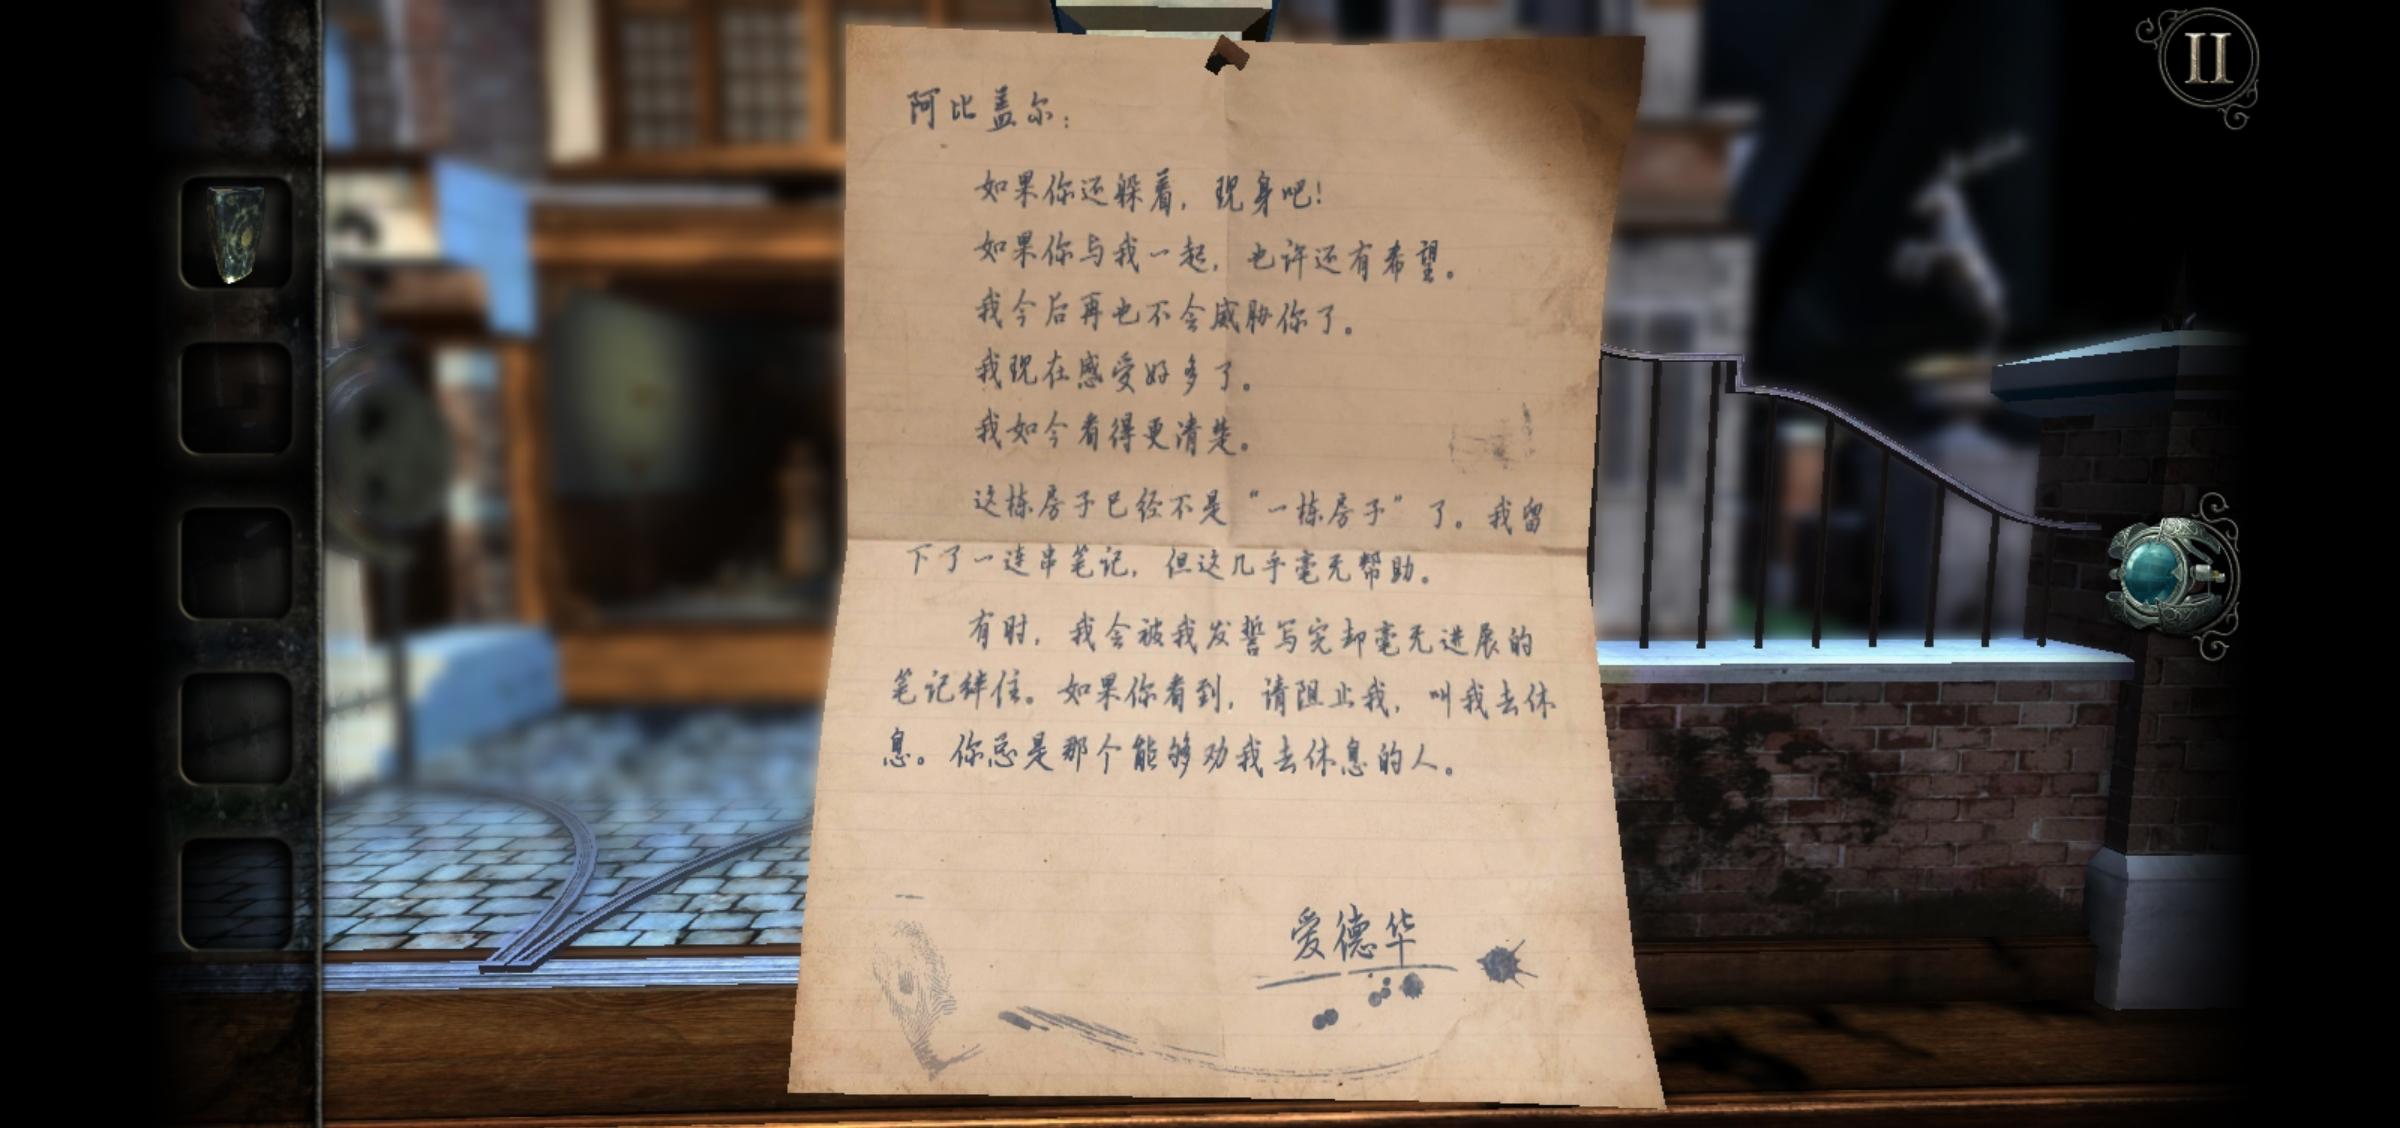 II
阿比盖尔：
如果你还躲着，现身吧！
如果你与我一起，也许还有希望。
我今后再也不会威胁你了。
我现在感受好多了。
我如今看得更清楚。
这栋房子已经不是“一栋房子”了。我留
下了一连串笔记，但这几乎毫无帮助。
有时，我会被我发誓写完却毫无进展的
笔记绊住。如果你看到，请阻止我，叫我去休
息。你总是那个能够劝我去休息的人。
爱德华